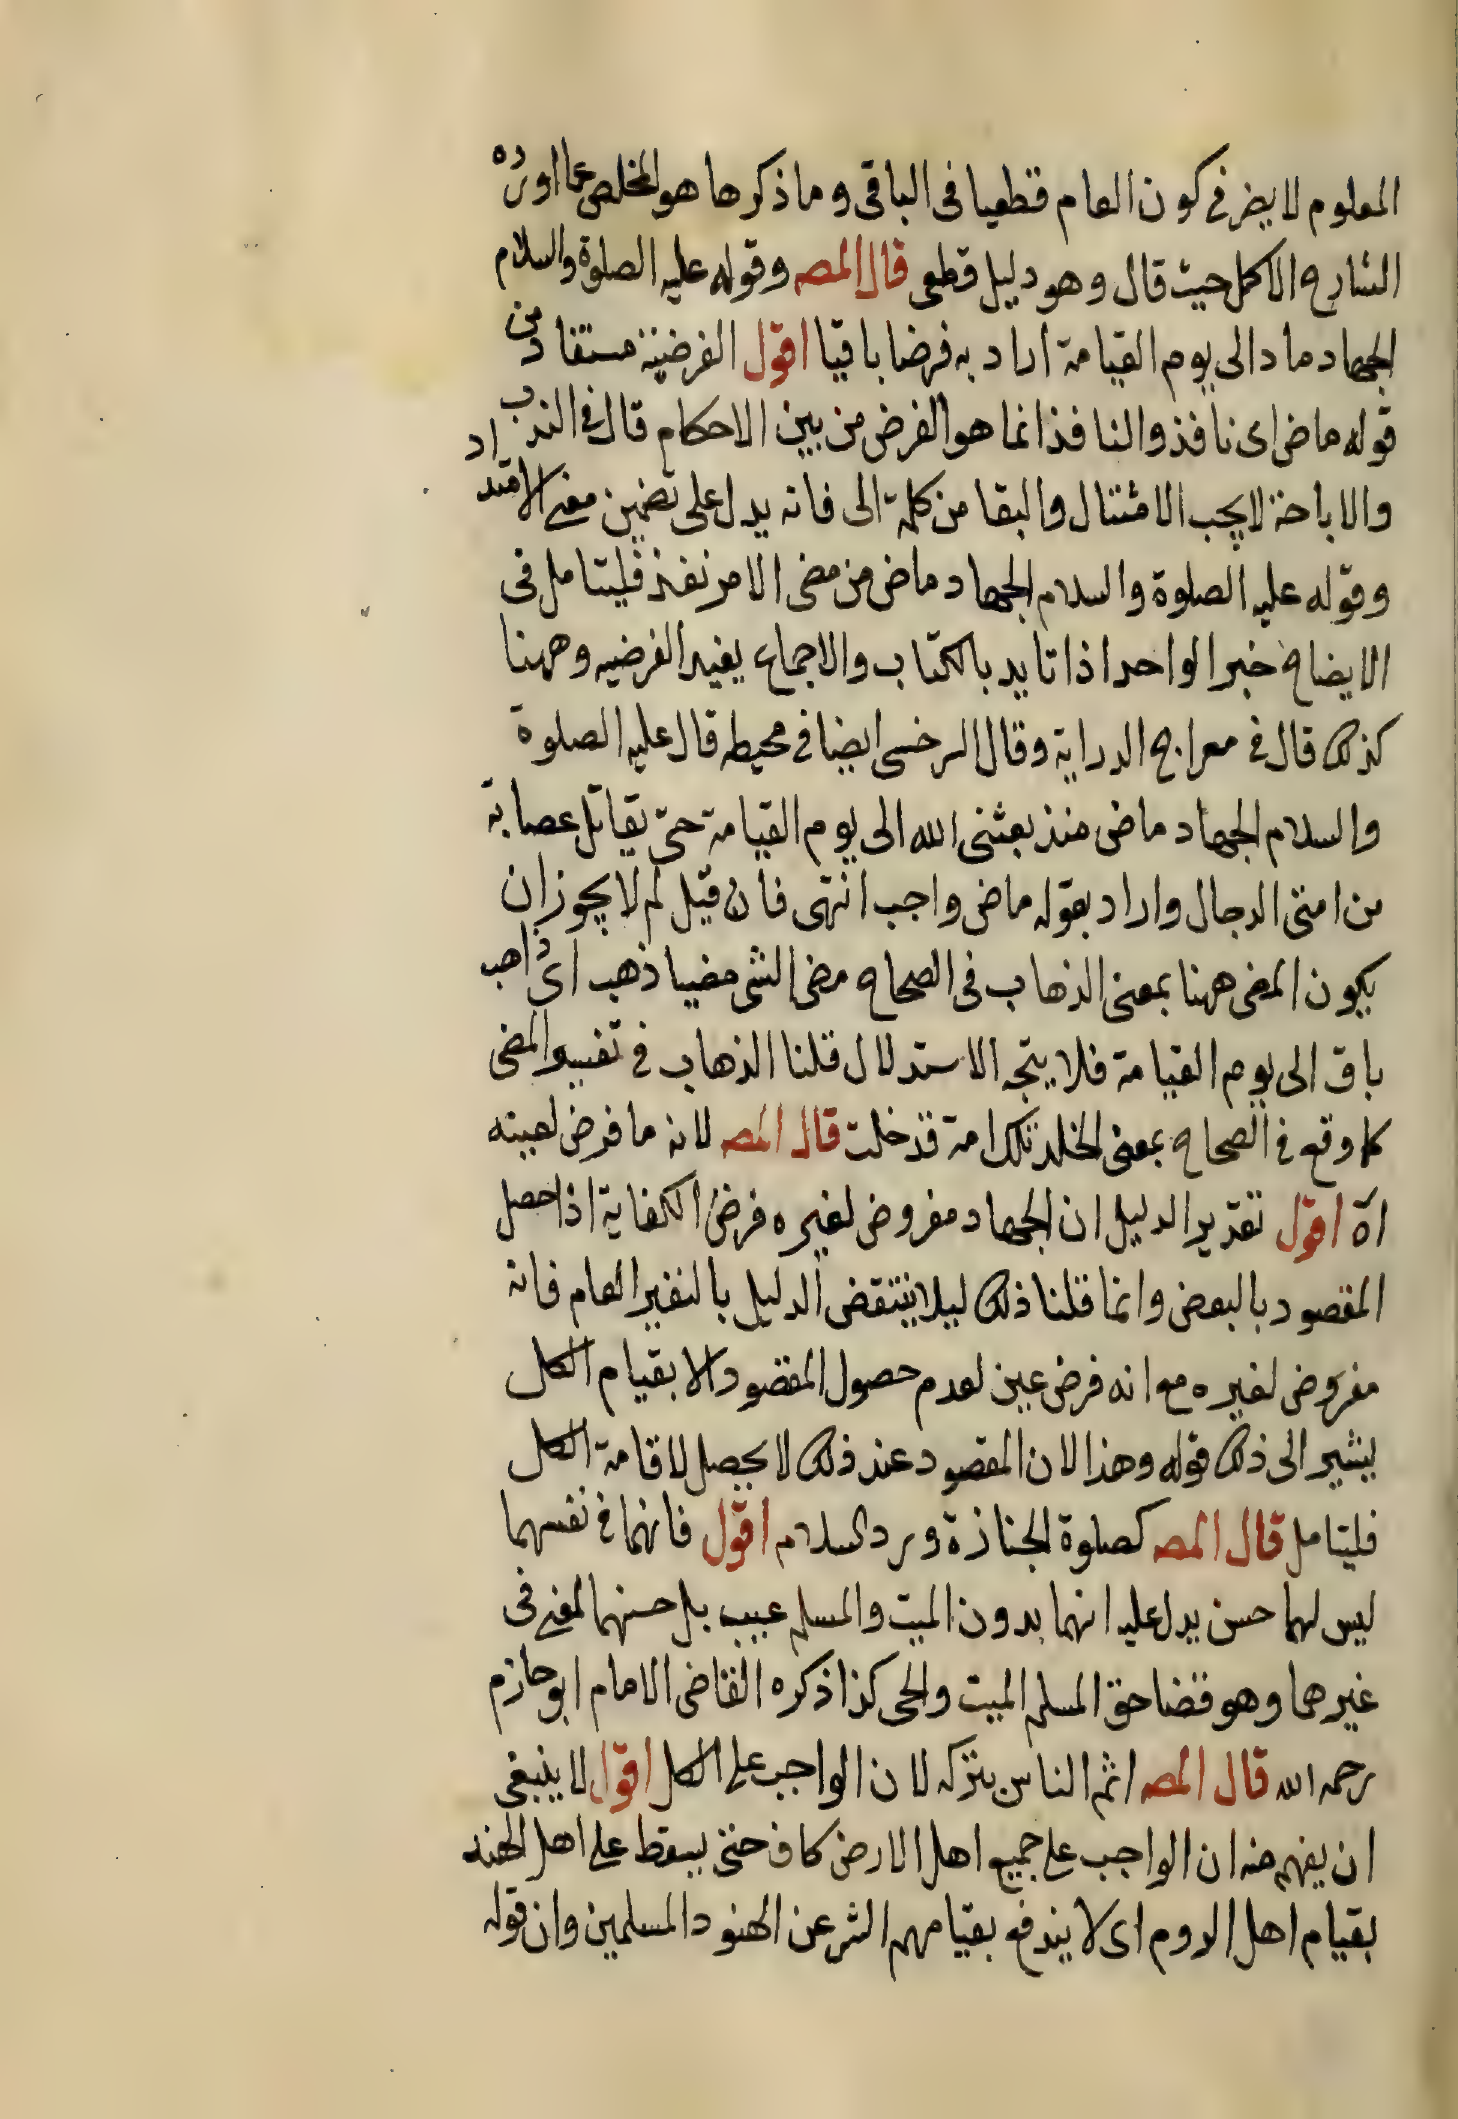 المعلوم لا يضر في كون العام قطعيا في الباقي وما ذكرها هو المخلص عما اورده
الشارح الاكمل حيث قال وهو دليل قطعي قال المصه وقوله عليه الصلوة والسلام
الجهاد ماد الى يوم القيامة اراد به فرضا باقيا اقول الفرضية مستفاد من
قوله ماض اى نافذ والنافذ انما هو الفرض من بين الاحكام قال في الندب
والاباحة لا يجب الامتثال والبقا من كلمة الى فانه يدل على تضمين معنى الامتداد
وقوله عليه الصلوة والسلام الجهاد ماض من مضى الامر نفذ فليتامل في
الايضاح خبر الواحد اذا تايد بالكتاب والاجماع يفيد الفرضيه وههنا
كذلك قال في معراج الدراية وقال السرخسى ايضا في محيطه قال عليه الصلوة
والسلام الجهاد ماض منذ بعثنى الله الى يوم القيامة حتى يقاتل عصابة
من امتى الدجال واراد بقوله ماض واجب انتهى فان قيل لم لا يجوز ان
يكون المضى ههنا بمعنى الذهاب في الصحاح مضى الشى مضيا ذهب اى ذاهب
باق الى يوم القيامة فلا يتجه الاستدلال قلنا الذهاب في تفسير المضى
كما وقع في الصحاح بمعنى الخلد تلك امة قد خلت قال المصه لانه ما فرض لعينه
اه اقول تقدير الدليل ان الجهاد مفروض لغيره فرض الكفاية اذا حصل
المقصود بالبعض وانما قلنا ذلك ليلا ينتقض الدليل بالنفير العام فانه
مفروض لغيره مع انه فرض عين لعدم حصول المقصود الا بقيام الكل
يشير الى ذلك قوله وهذا لان المقصود عند ذلك لا يحصل الاقامة الكل
فليتامل قال المصه كصلوة الجنازة ورد السلام اقول فانهما في نفسهما
ليس لهما حسن يدل عليه انهما بدون الميت والمسلم عيب بل حسنهما لمعنى في
غيرهما وهو قضا حق المسلم الميت والحى كذا ذكره القاضى الامام ابو حازم
رحمه الله قال المصه اثم الناس بتركه لان الواجب على الكل اقول لا ينبغى
ان يفهم منه ان الواجب على جميع اهل الارض كاف حتى يسقط على اهل الهند
بقيام اهل الروم اى لا يندفع بقيامهم الشر عن الهنود المسلمين وان قوله